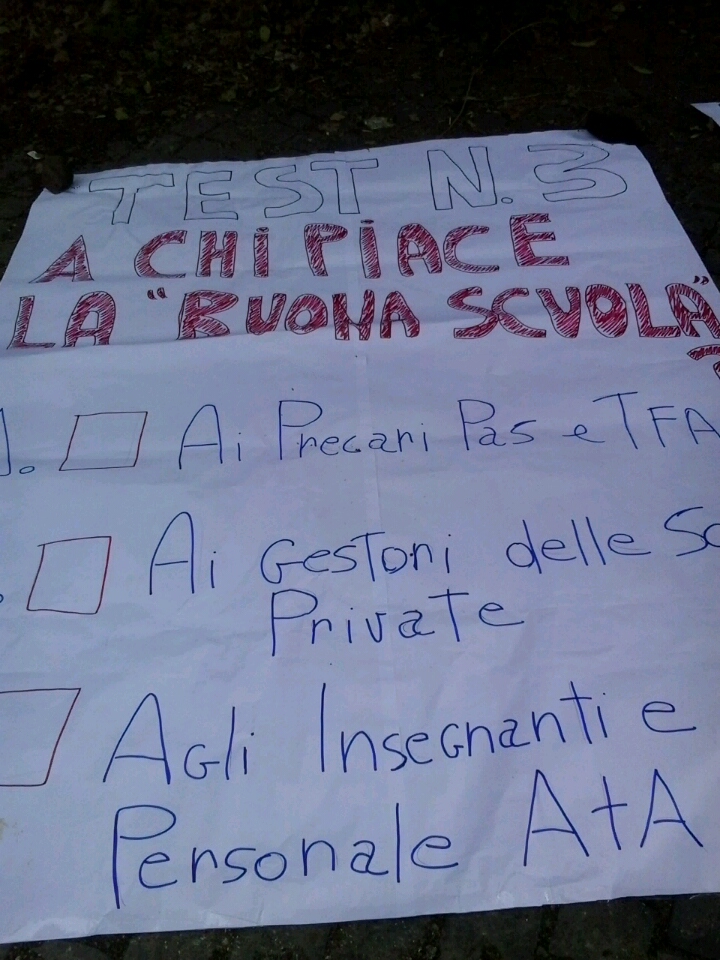 TEST N.3
A CHI PIACE
LA "BUONA SCUOLA"?
1. Ai Precari Pas e TFA
Ai Gestori delle
Private
Agli Insegnanti e
Personale ATA